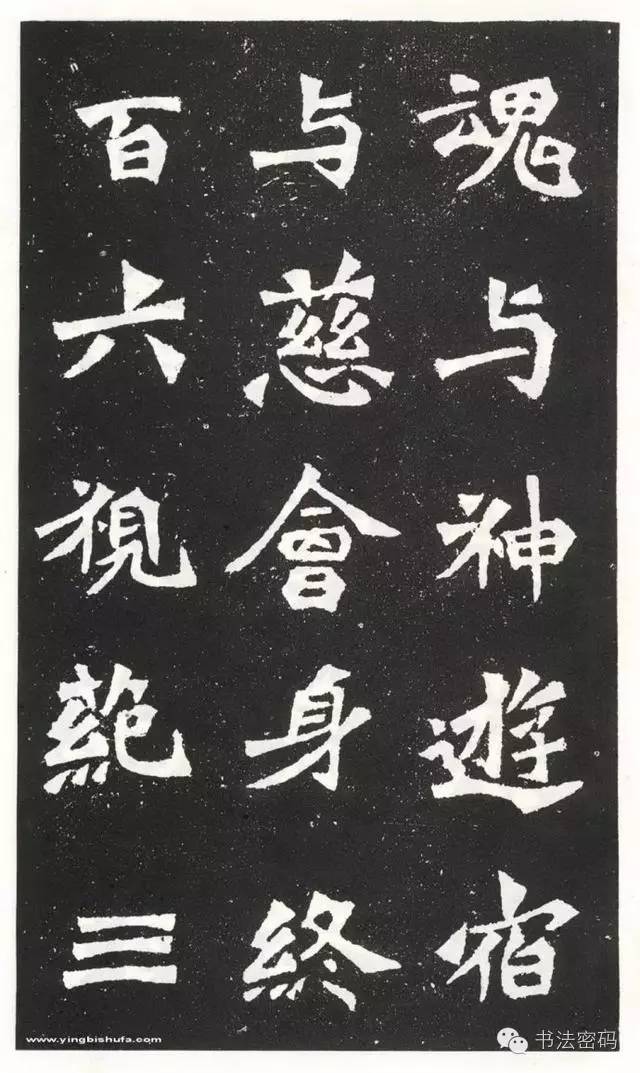 魂与神遊宿
与慈會身終
百六視蕝三
www.yingbishufa.com
书法密码